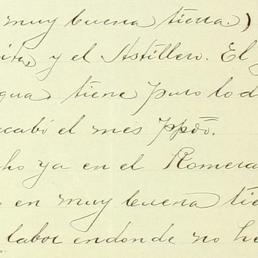 muy buena tierra)
y el Astillero. El
tiene puro lod
acabó el mes ppdo.
ho ya en el Romera
en muy buena tie
labor endonde no he